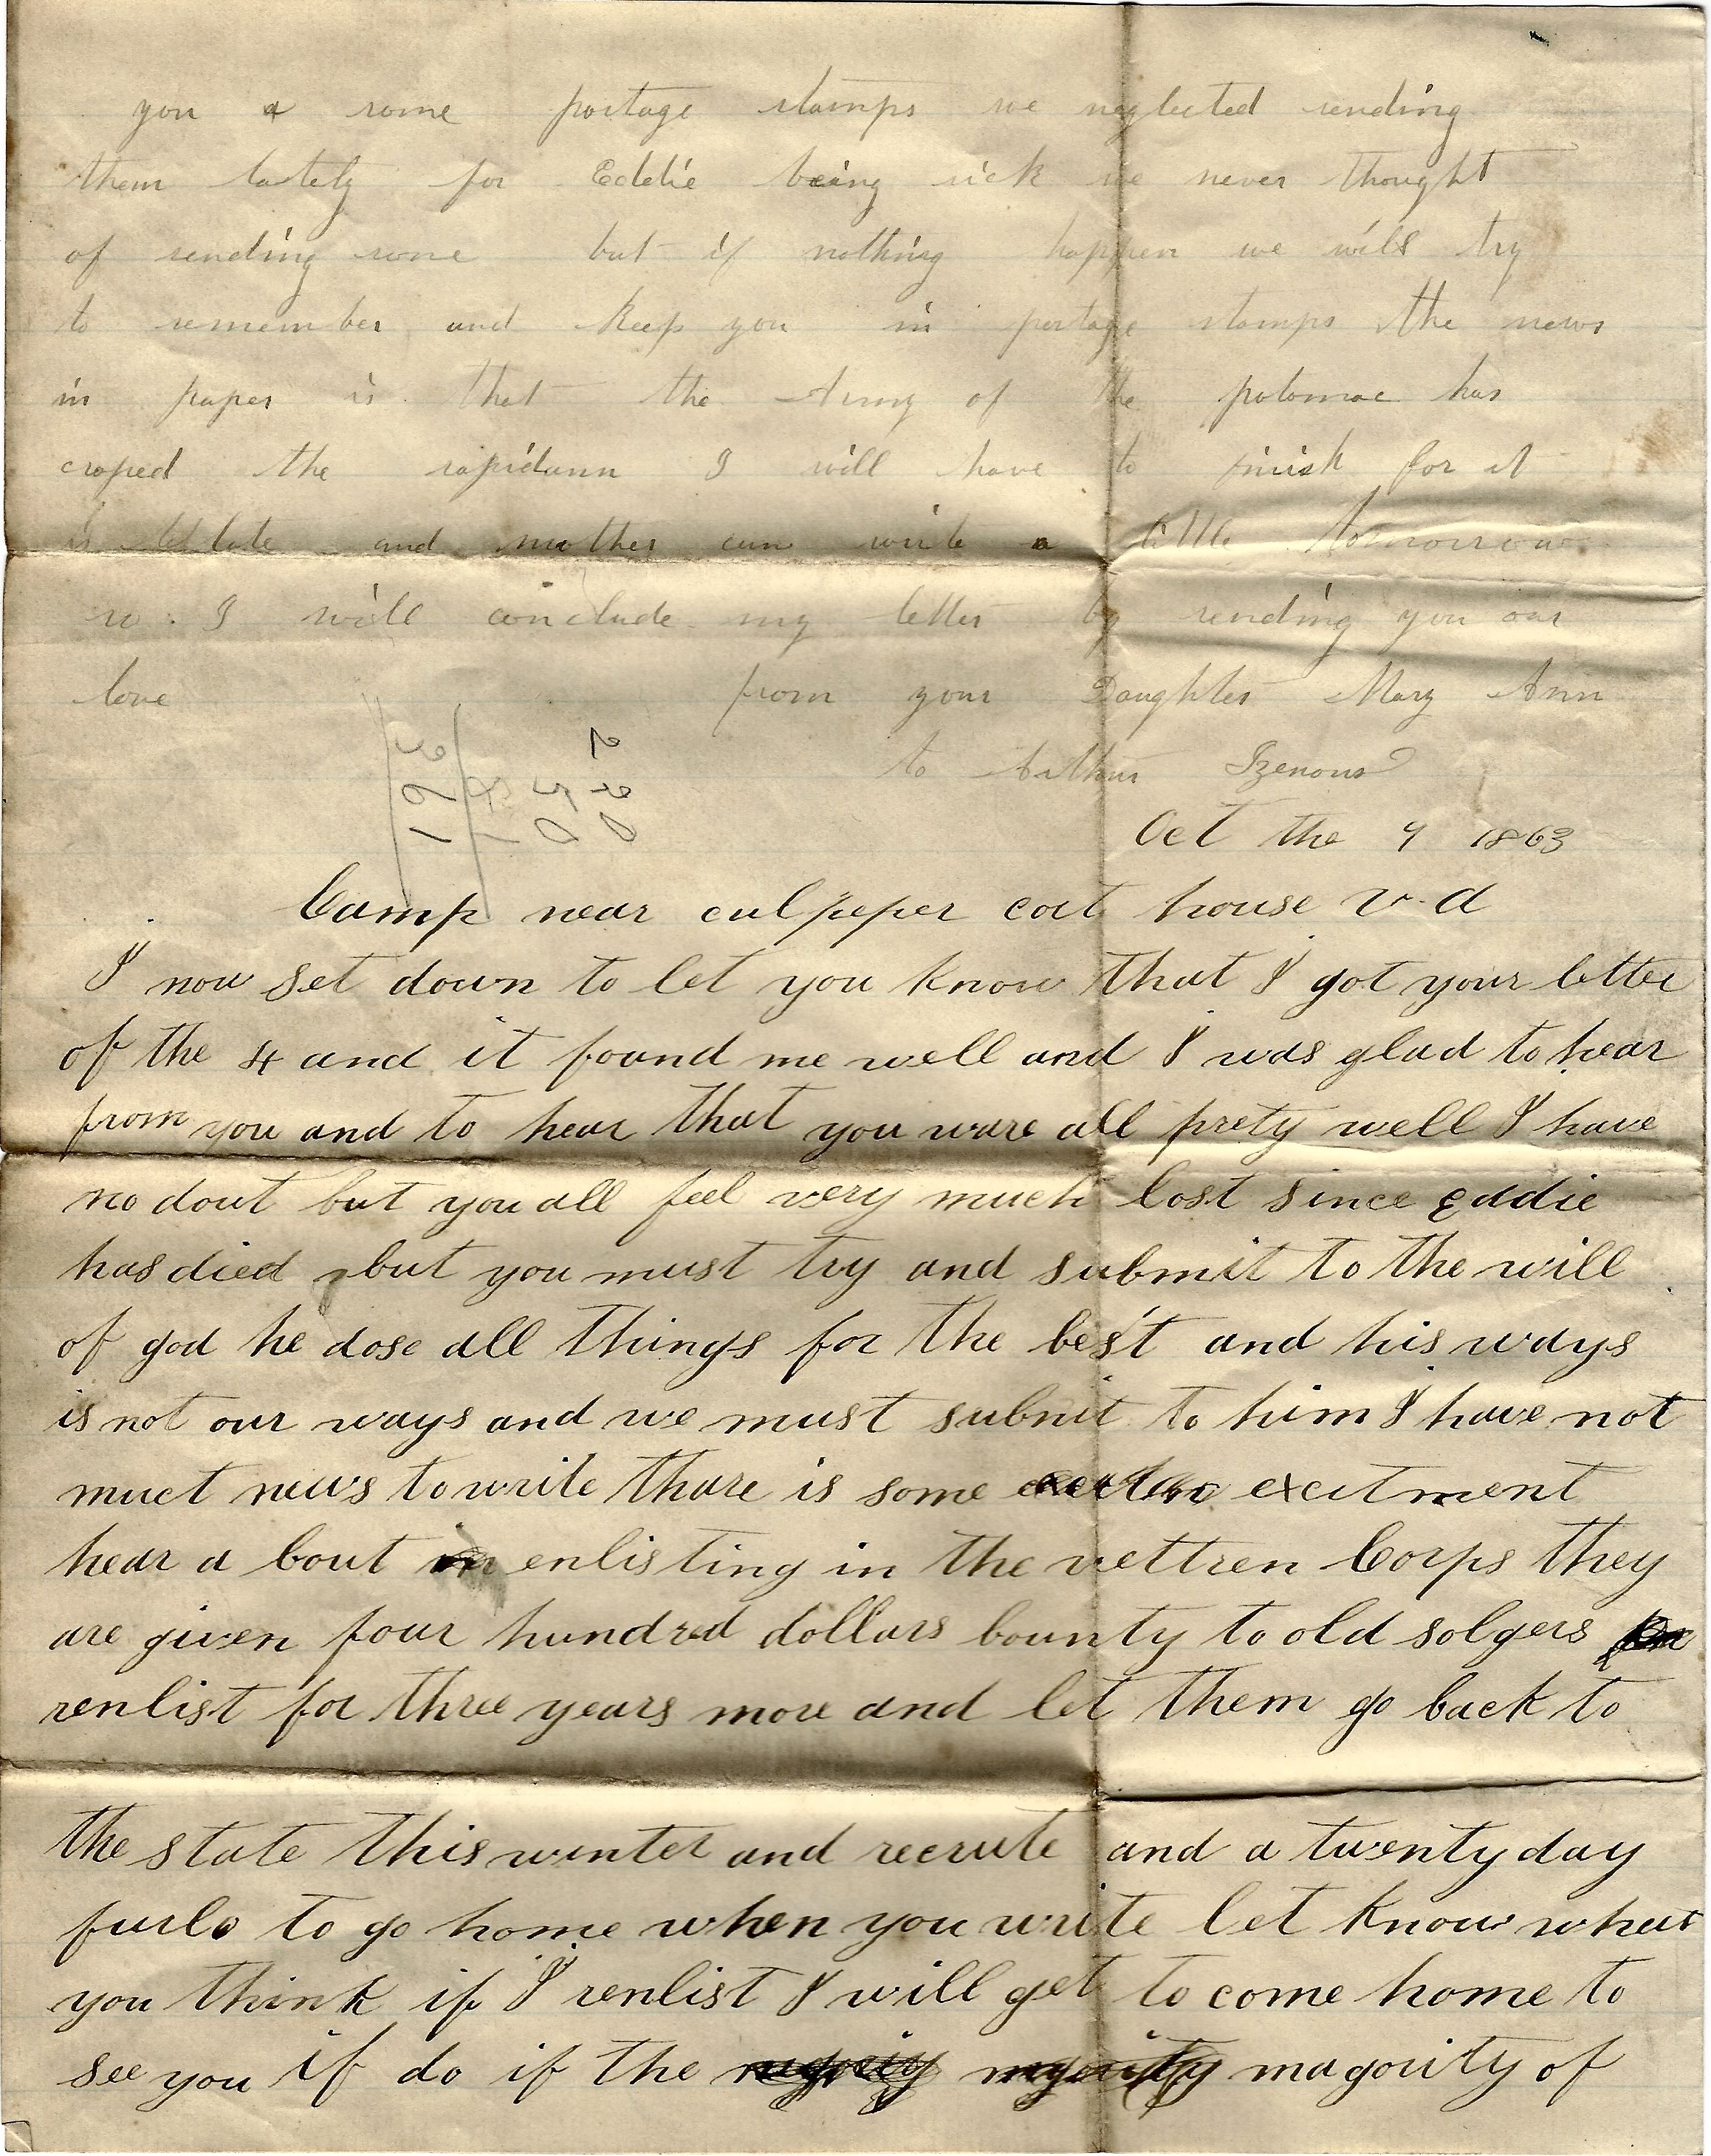 you a some postage stamps we neglected sending
them lately for Eddie being sick we never thought
of sending some but if nothing happen we will try
to remember and keep you in postage stamps the news
in paper is that the Army of the potomac has
crosed the rapidann I will have to finish for it
is late and mother can write a little tomorrow
so I will conclude my letter by sending you our
love from your Daughter Mary Ann
to Arthur
Oct the 9 1863
Camp near culpeper cort house v.a
I now set down to let you know that I got your letter
of the 4 and it found me well and I was glad to hear
from you and to hear that you ware all prety well I have
no dout but you all feel very much lost since Eddie
has died but you must try and submit to the will
of god he dose all things for the best and his ways
is not our ways and we must submit to him I have not
muct news to write thare is some excitment
hear a bout enlisting in the vettren Corps they
are given four hundred dollars bounty to old solgers
renlist for three years more and let them go back to
the state this winter and recrute and a twenty day
furlo to go home when you write let know what
you think if I renlist I will get to come home to
see you if do if the magority of